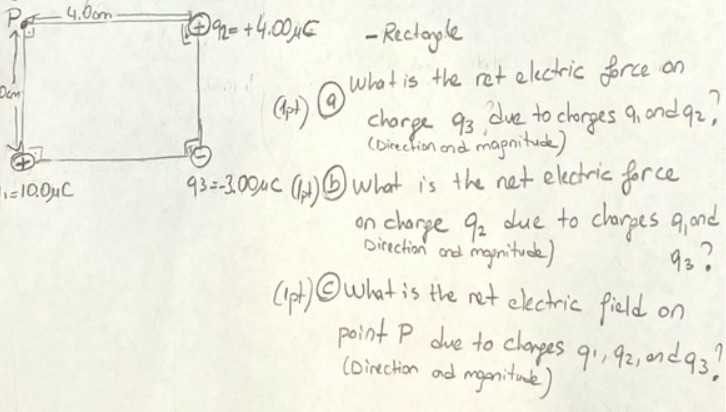 P 4.0cm
q2=+4.00μC
- Rectangle
0cm
(1pt) (a) What is the net electric force on
charge q3 due to charges q1 and q2?
(Direction and magnitude)
1=10.0μC
q3=-3.00μC
(1pt) (b) What is the net electric force
on charge q2 due to charges q1 and
q3?
Direction and magnitude)
(1pt) (c) What is the net electric field on
point P due to charges q1, q2, and q3?
(Direction and mganitude)